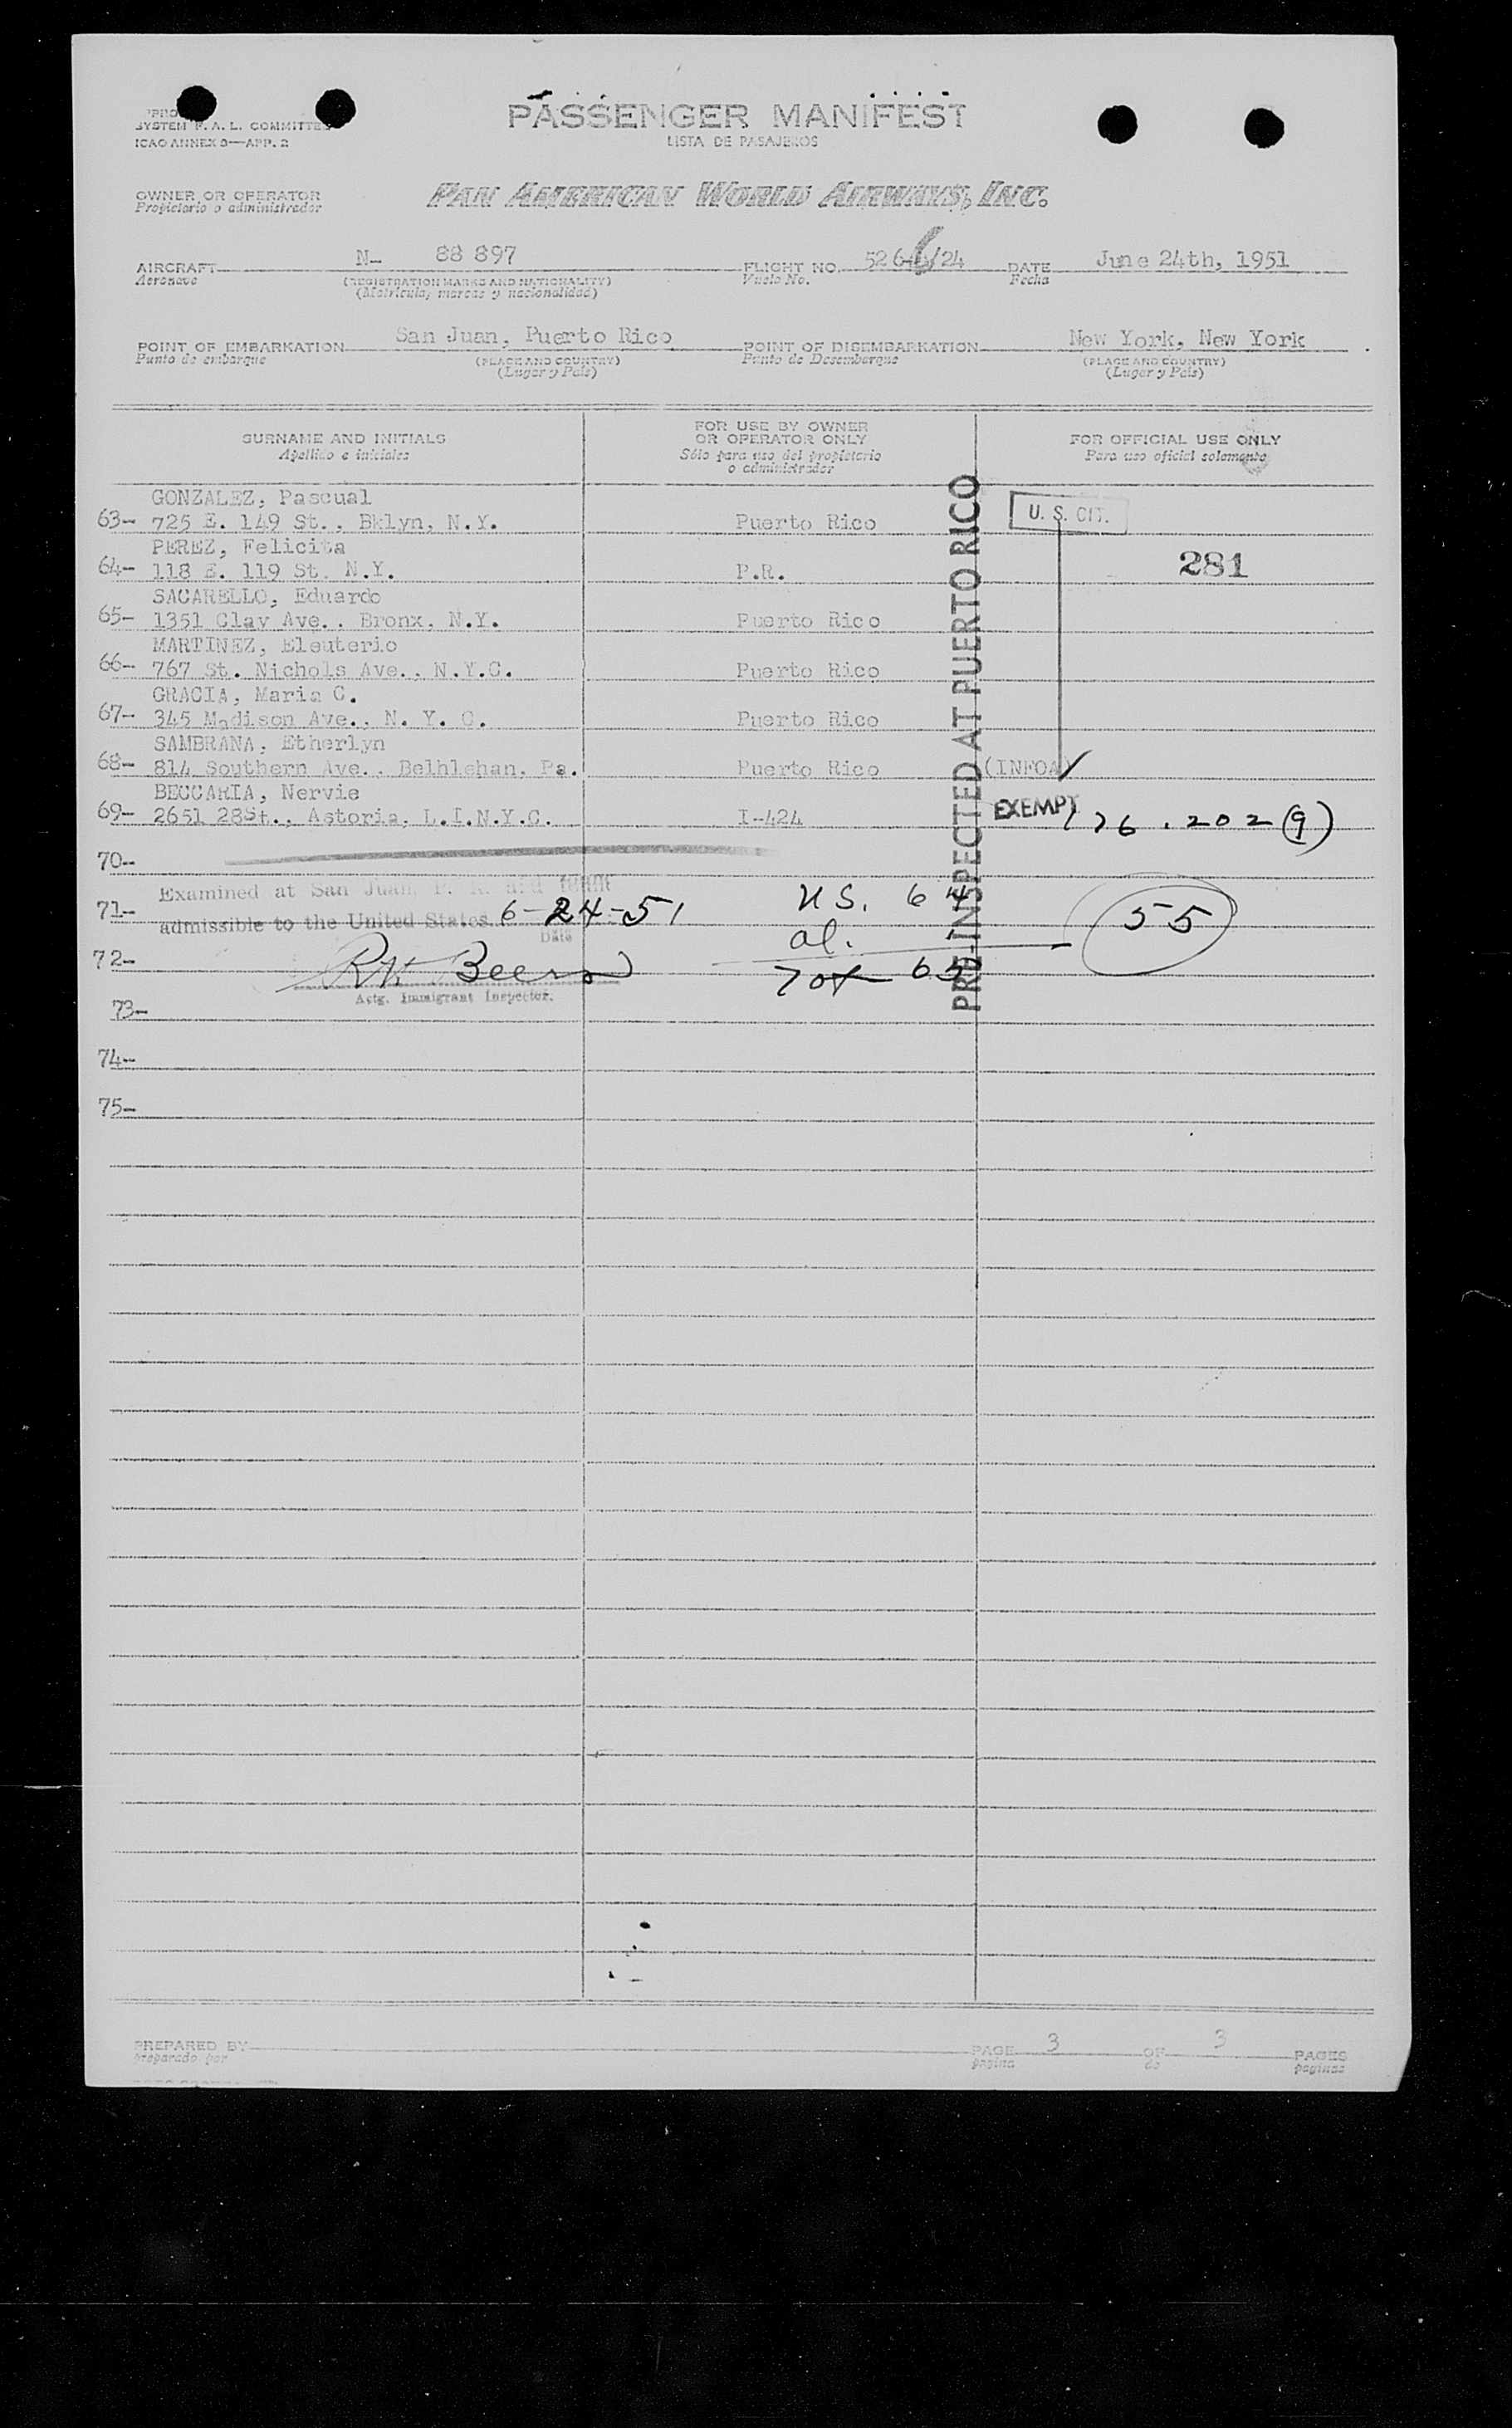 SYSTEM F. A. L. COMMITTEE
ICAO ANNEX 9—APP. 2
PASSENGER MANIFEST
LISTA DE PASAJEROS
OWNER OR OPERATOR
Propietario o administrador
PAN AMERICAN WORLD AIRWAYS, INC.
AIRCRAFT N- 88 897 FLIGHT NO. 526 /24 DATE June 24th, 1951
Aeronave (REGISTRATION MARKS AND NATIONALITY) Vuelo No. Fecha
(Matrícula, marcas y nacionalidad)
POINT OF EMBARKATION San Juan, Puerto Rico POINT OF DISEMBARKATION New York, New York
Punto de embarque (PLACE AND COUNTRY) Punto de Desembarque (PLACE AND COUNTRY)
(Lugar y País) (Lugar y País)
SURNAME AND INITIALS
Apellido e iniciales
FOR USE BY OWNER
OR OPERATOR ONLY
Sólo para uso del propietario
o administrador
FOR OFFICIAL USE ONLY
Para uso oficial solamente
GONZALEZ, Pascual
63- 725 E. 149 St., Bklyn, N.Y. Puerto Rico U. S. CIT.
PEREZ, Felicita
64- 118 E. 119 St. N.Y. P.R. 281
SACARELLO, Eduardo
65- 1351 Clay Ave., Bronx, N.Y. Puerto Rico
MARTINEZ, Eleuterio
66- 767 St. Nichols Ave., N.Y.C. Puerto Rico
GRACIA, Maria C.
67- 345 Madison Ave., N. Y. C. Puerto Rico
SAMBRANA, Etherlyn
68- 814 Southern Ave., Belhlehan, Pa. Puerto Rico (INFOA)
BECCARIA, Nervie
69- 2651 28St., Astoria, L.I.N.Y.C. I-424 EXEMPT 176.202(g)
PRE-INSPECTED AT PUERTO RICO
70-
Examined at San Juan, P. R. and found
71- admissible to the United States 6-24-51 U.S. 64
Date al. 55
72- R.N. Beers Tot 65
Actg. Immigrant Inspector.
73-
74-
75-
PREPARED BY PAGE 3 OF 3 PAGES
preparado por página de páginas